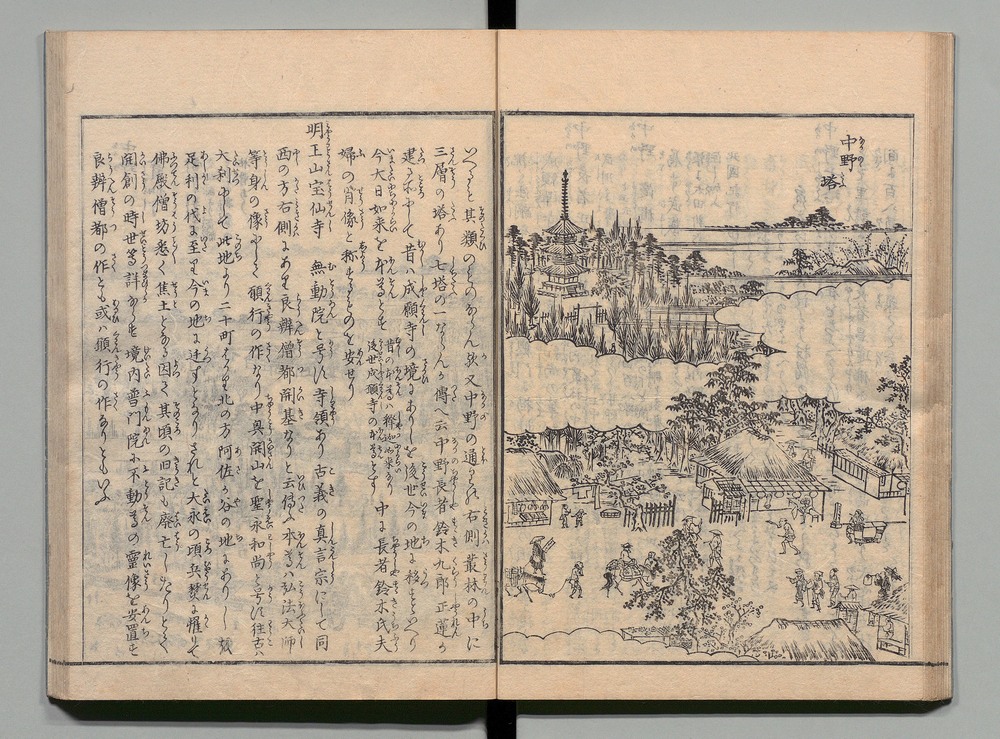 中野
塔
いへると其類のものならん歟又中野の通り右側叢林の中に
三層の塔あり七塔の一ならんか傳へ云中野長者鈴木九郎正蓮か
建る所にして昔ハ成願寺の境にありしを後世今の地に移すといへり
今大日如来を本尊とす 昔の本尊ハ釋迦如来なり後世成願寺の本尊とす 中に長者鈴木氏夫
婦の肖像と称するものを安せり
明王山宝仙寺 無動院と号す寺領あり古義の真言宗にして同
西の方右側にあり良辨僧都開基なりと云傳ふ本尊ハ弘法大師
等身の像にして願行の作なり中興開山を聖永和尚と号す往古ハ
大刹にして此地より二十町はかり北の方阿佐か谷の地にありしか
足利の代に至り今の地に迁すとなりされと大永の頃兵燹に罹りて
佛殿僧坊悉く焦土となる因て其頃の旧記も廃亡したりとて
開創の時世等詳ならす境内普門院に不動尊の靈像を安置す
良辨僧都の作とも或ハ願行の作なりともいふ